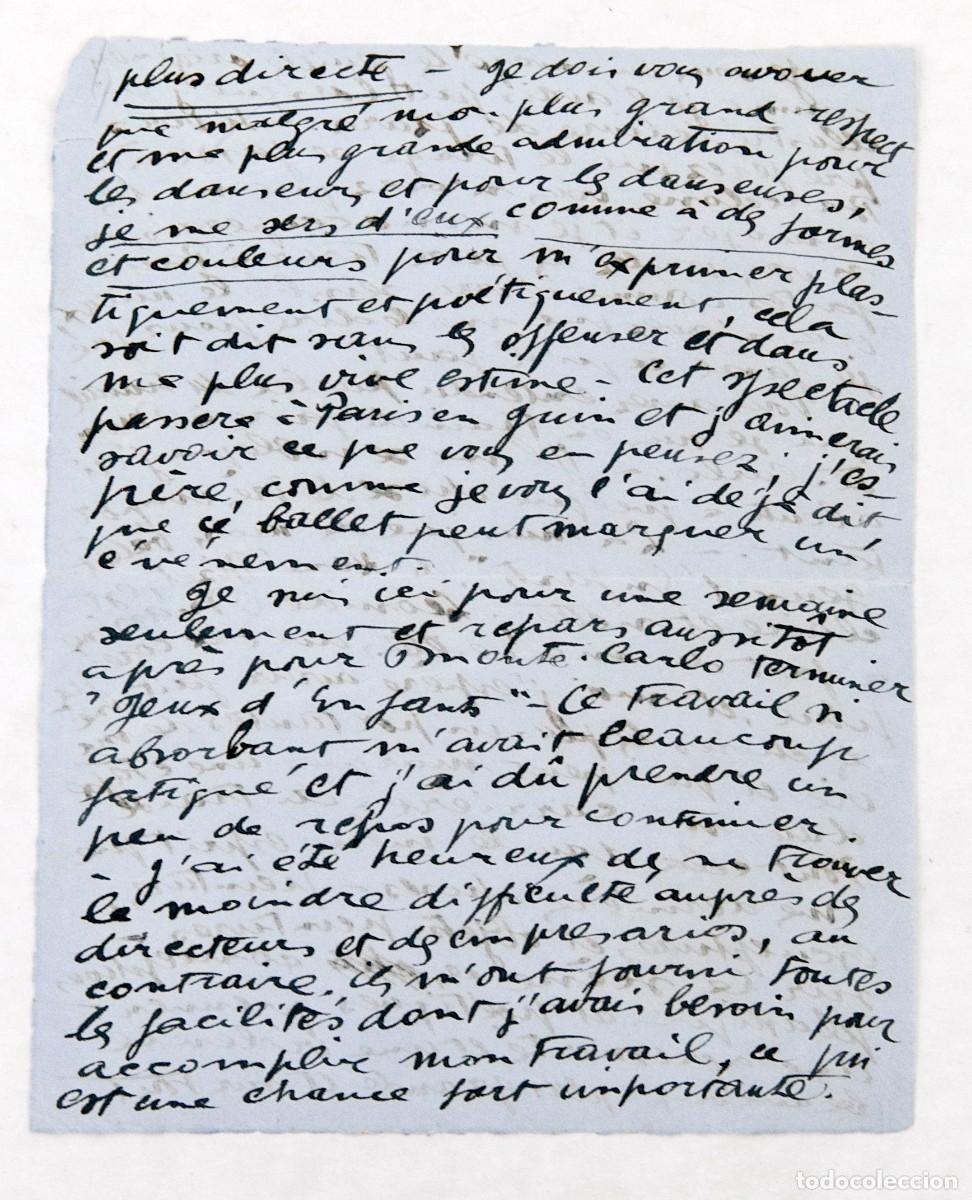 plus directe – Je dois vous avouer
que malgré mon plus grand respect
et ma plus grande admiration pour
les danseurs et pour les danseuses,
je me sers d'eux comme à des formes
et couleurs pour m'exprimer plas-
tiquement et poétiquement, cela
soit dit sans les offenser et dans
ma plus vive estime – Cet spectacle
passera à Paris en Juin et j'aimerais
savoir ce que vous en pensez; j'es-
père, comme je vous l'ai déjà dit
que ce ballet peut marquer un
événement.
Je suis ici pour une semaine
seulement et repars aussitôt
après pour Monte-Carlo terminer
"Jeux d'Enfants" – Ce travail si
absorbant m'avait beaucoup
fatigué et j'ai dû prendre un
peu de repos pour continuer.
J'ai été heureux de ne trouver
la moindre difficulté auprès des
directeurs et des impresarios, au
contraire, ils m'ont fourni toutes
les facilités dont j'avais besoin pour
accomplir mon travail, ce qui
est une chance fort importante.
todocoleccion